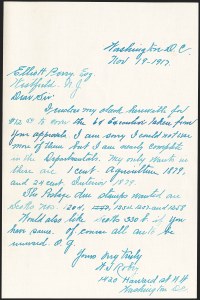 Washington D.C.
Nov 19-1917.
Elliott Perry Esq
Westfield, N J
Dear Sir:
I enclose my check herewith for
to cover the taken from
your approvals I am sorry I could not use
more of them but I am nearly complete
in the Departmentals. My only wants in
these are 1 cent Agriculture 1879,
and 24 cent Interior 1879.
The Postage due stamps wanted are
Scotts Nos.
Would also like Scotts 330 if you
have same. of course all are to be
unused O.G.
Yours very truly
1420 Harvard st N.W
Washington D.C.